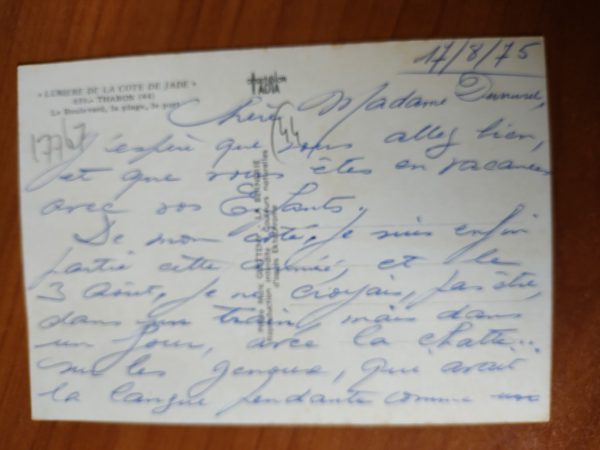 17/8/75
« LUMIÈRE DE LA COTE DE JADE »
THARON (44)
Le Boulevard, la plage, le port
17767
(44
Chère Madame
J'espère que vous allez bien,
et que vous êtes en vacances
avec vos Enfants.
De mon côté, je suis enfin
partie cette année, et le
3 Août, je ne croyais, pas être,
dans un train, mais dans
un four, avec la chatte...
sur les genoux, qui avait
la langue pendante comme un